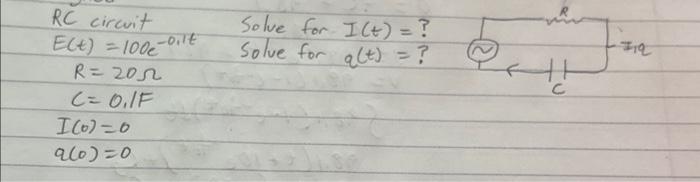 RC circuit
E(t) = 100e^-0.1t
R = 20Ω
C = 0.1F
I(0) = 0
q(0) = 0
Solve for I(t) = ?
Solve for q(t) = ?
R
I, q
C